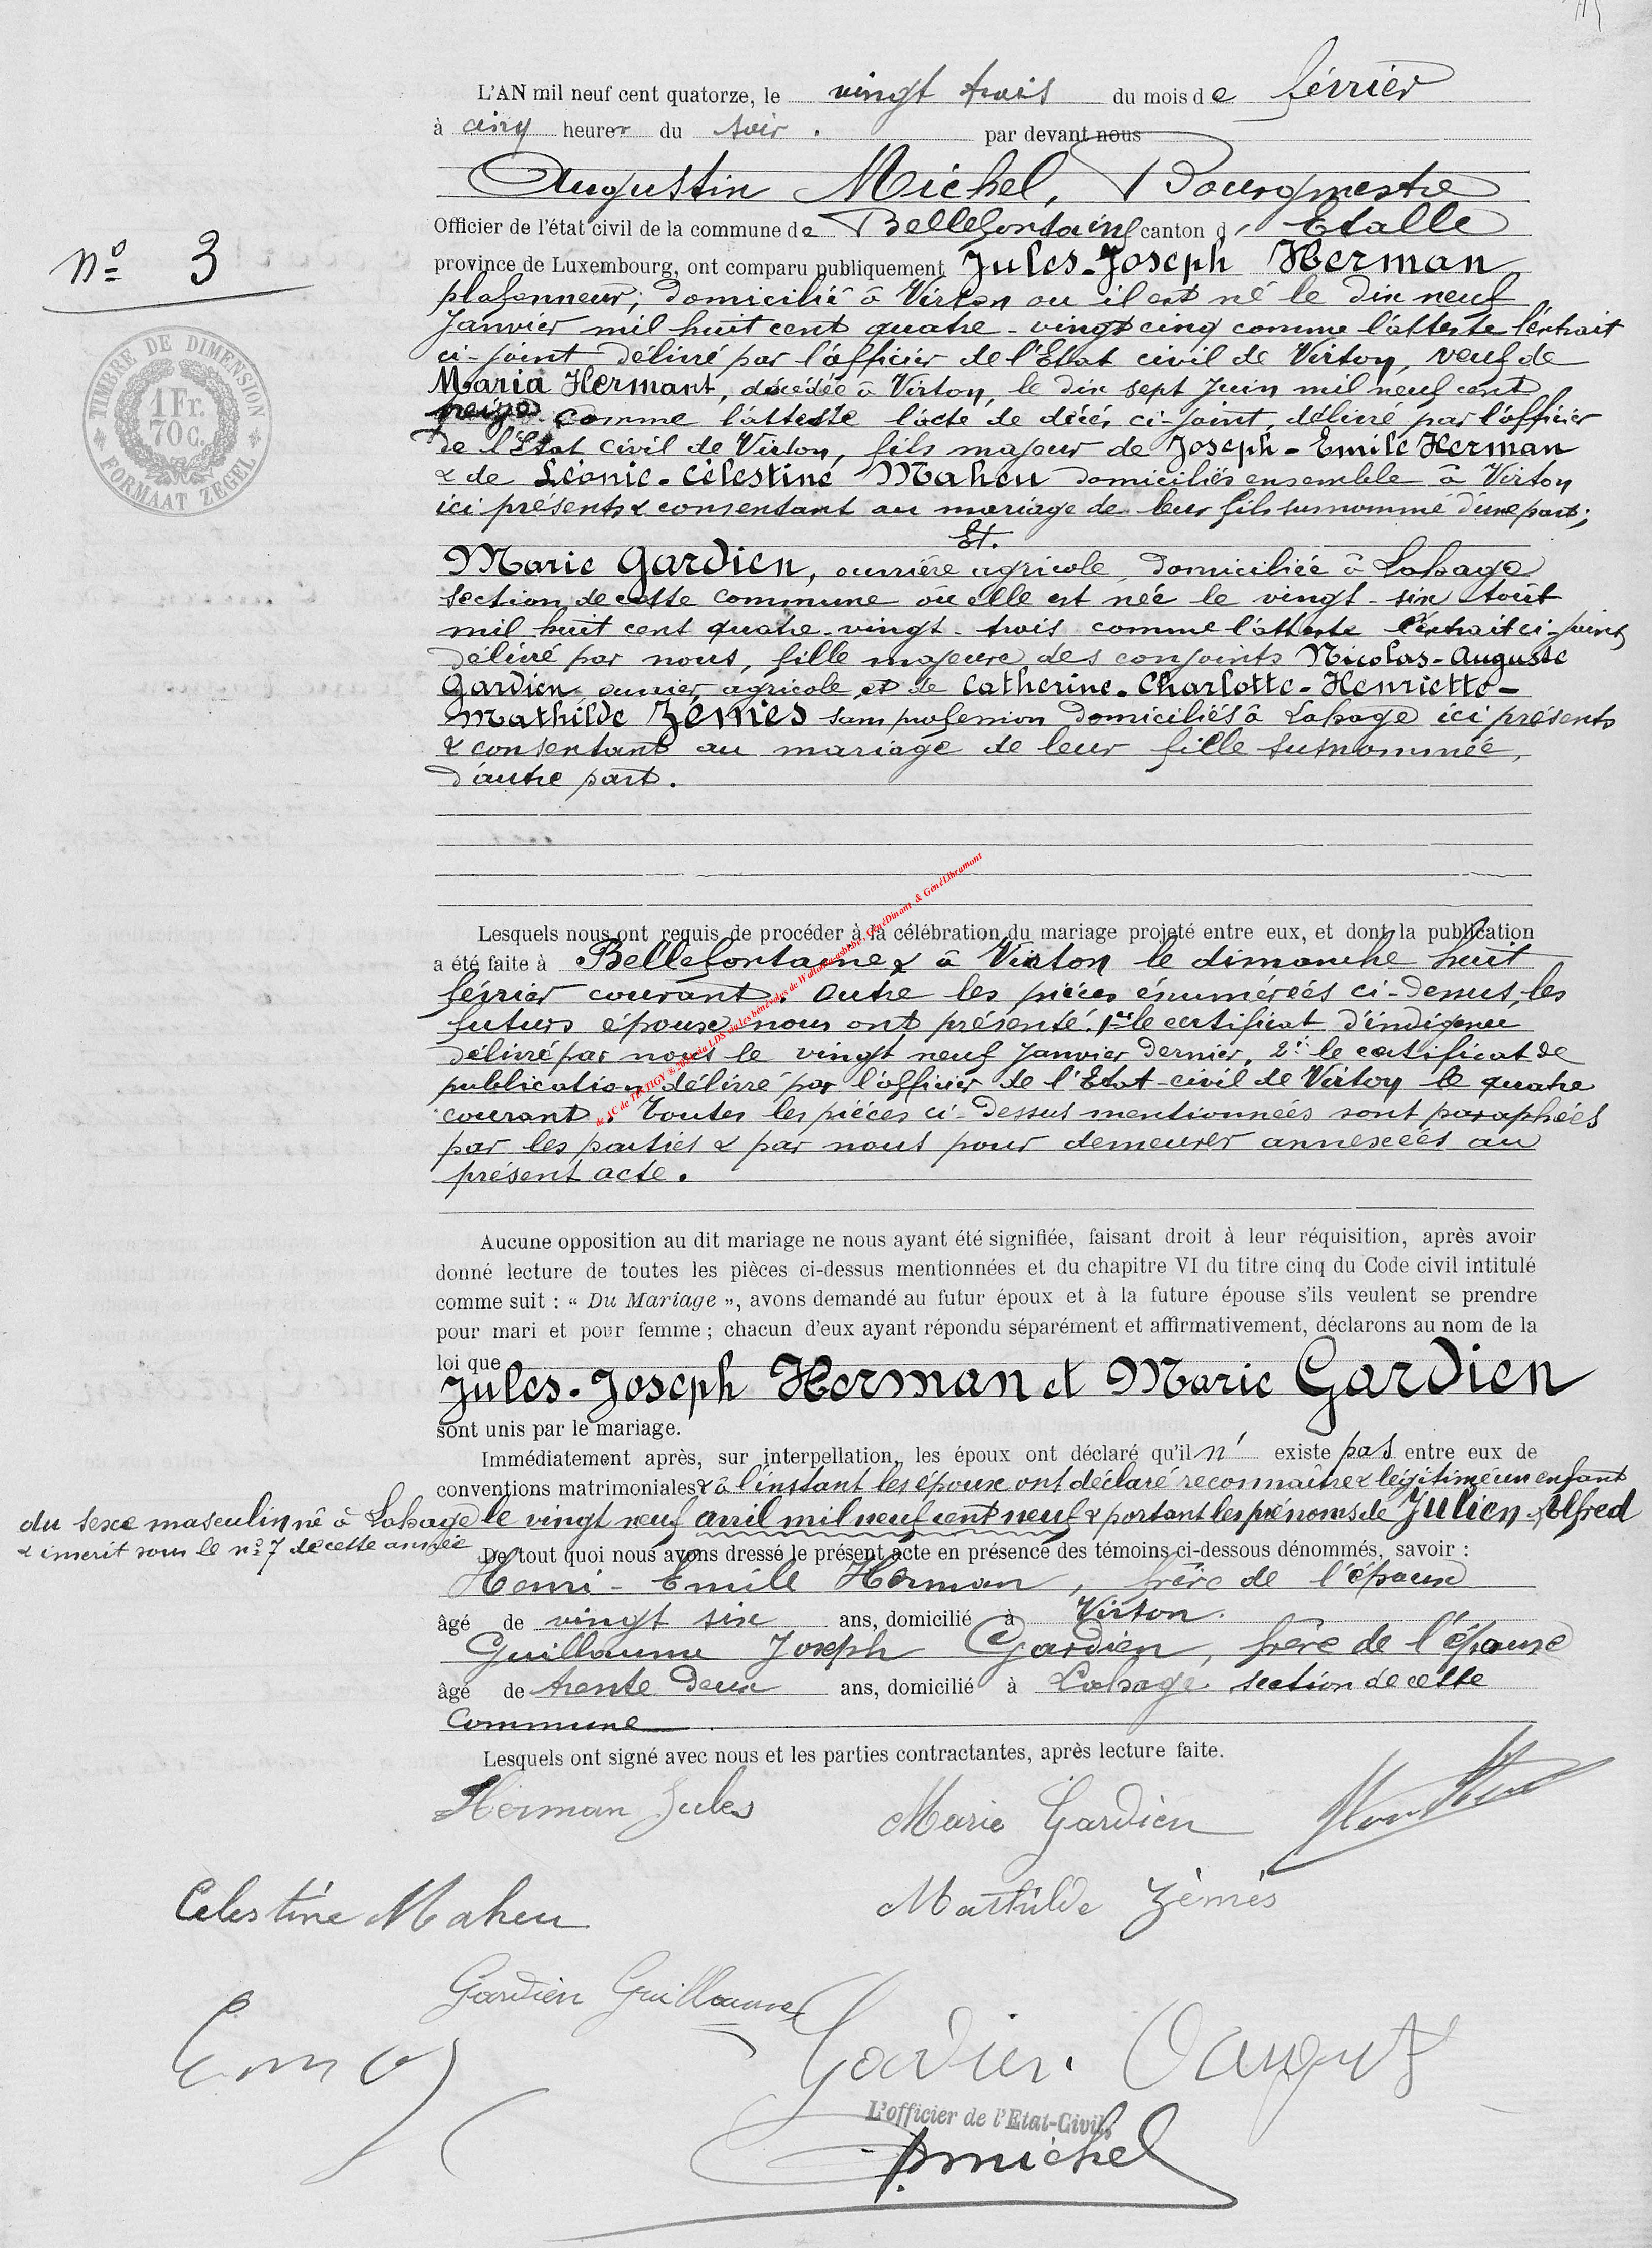 L'AN mil neuf cent quatorze, le vingt trois du mois de février
à cinq heures du soir. par devant nous
Augustin Michel, Bourgmestre
Officier de l'état civil de la commune de Bellefontaine canton d' Etalle
nº 3
province de Luxembourg, ont comparu publiquement Jules-Joseph Herman
plafonneur, domicilié à Virton ou il est né le dix neuf
Janvier mil huit cent quatre-vingt cinq comme l'atteste l'extrait
ci-joint délivré par l'officier de l'Etat civil de Virton, veuf de
Maria Hermant, décédée à Virton, le dix sept Juin mil neuf cent
treize comme l'atteste l'acte de décès ci-joint, délivré par l'officier
de l'Etat civil de Virton, fils majeur de Joseph-Emile Herman
& de Léonie-Célestine Maheu domiciliés ensemble à Virton
ici présents & consentant au mariage de leur fils susnommé d'une part;
Et.
Marie Gardien, ouvrière agricole, domiciliée à Lahage
section de cette commune où elle est née le vingt-six août
mil huit cent quatre-vingt-trois comme l'atteste l'extrait ci-joint
délivré par nous, fille majeure des conjoints Nicolas-Auguste
Gardien ouvrier agricole et de Catherine-Charlotte-Henriette-
Mathilde Zémes sans profession domiciliés à Lahage ici présents
& consentant au mariage de leur fille susnommée,
d'autre part.
TIMBRE DE DIMENSION
1 Fr.
70 C.
FORMAAT ZEGEL
Lesquels nous ont requis de procéder à la célébration du mariage projeté entre eux, et dont la publication
a été faite à Bellefontaine & à Virton le dimanche huit
février courant. Outre les pièces énumérées ci-dessus, les
futurs époux nous ont présenté 1º le certificat d'indigence
délivré par nous le vingt neuf Janvier dernier, 2º le certificat de
publication délivré par l'officier de l'Etat-civil de Virton le quatre
courant. Toutes les pièces ci-dessus mentionnées sont paraphées
par les parties & par nous pour demeurer annexées au
présent acte.
de AC de TINTIGY ® 2024 via LDS via les bénévoles de GénéDinant & GénéLibramont
Aucune opposition au dit mariage ne nous ayant été signifiée, faisant droit à leur réquisition, après avoir
donné lecture de toutes les pièces ci-dessus mentionnées et du chapitre VI du titre cinq du Code civil intitulé
comme suit : « Du Mariage », avons demandé au futur époux et à la future épouse s'ils veulent se prendre
pour mari et pour femme ; chacun d'eux ayant répondu séparément et affirmativement, déclarons au nom de la
loi que
Jules-Joseph Herman et Marie Gardien
sont unis par le mariage.
Immédiatement après, sur interpellation, les époux ont déclaré qu'il n' existe pas entre eux de
conventions matrimoniales & à l'instant les époux ont déclaré reconnaître & légitimer un enfant
du sexe masculin né à Lahage le vingt neuf avril mil neuf cent neuf & portant les prénoms de Julien-Alfred
& inscrit sous le nº 7 de cette année
De tout quoi nous avons dressé le présent acte en présence des témoins ci-dessous dénommés, savoir :
Henri-Emile Herman, frère de l'époux
âgé de vingt six ans, domicilié à Virton.
Guillaume Joseph Gardien, frère de l'épouse
âgé de trente deux ans, domicilié à Lahage section de cette
commune
Lesquels ont signé avec nous et les parties contractantes, après lecture faite.
Herman Jules
Marie Gardien
Celestine Maheu
Mathilde Zémès
Gardien Guillaume
Gardien
L'officier de l'Etat-Civil,
Amichel